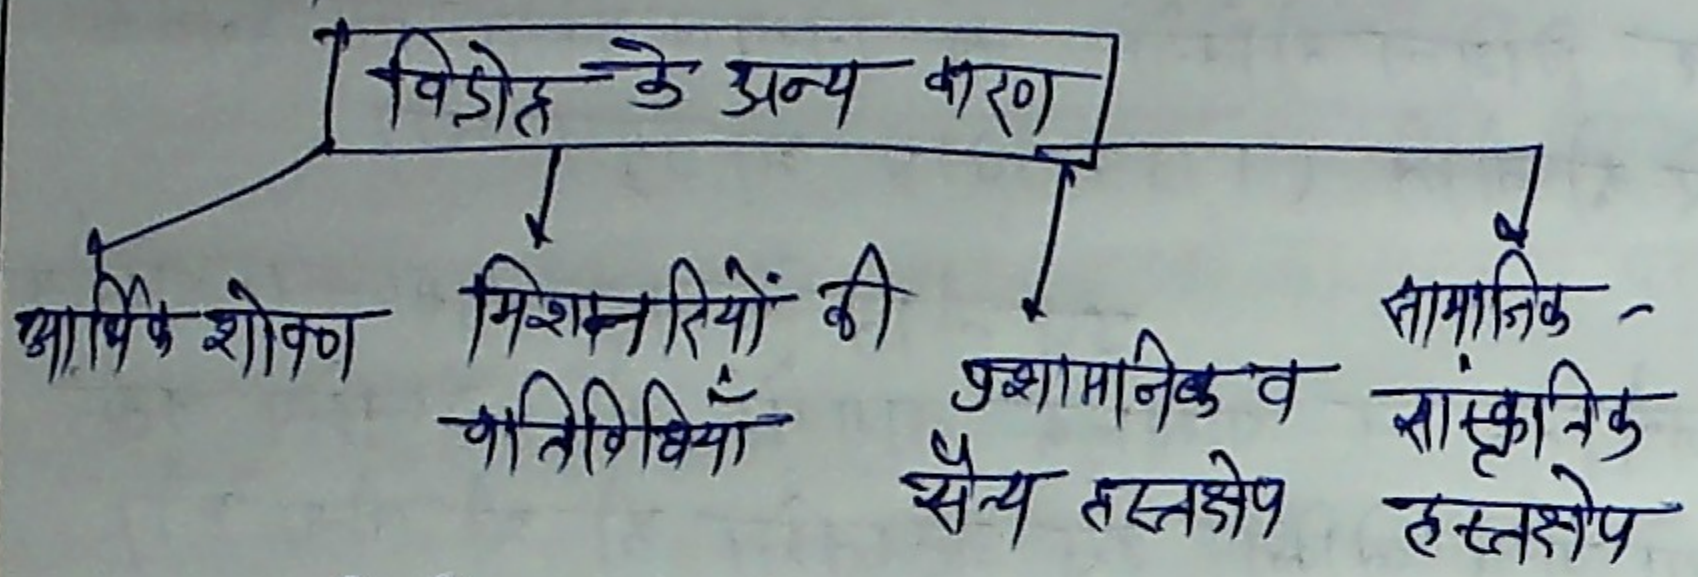 विद्रोह के अन्य कारण
आर्थिक शोषण
मिशनरियों की
गतिविधियाँ
प्रशासनिक व
सैन्य हस्तक्षेप
सामाजिक -
सांस्कृतिक
हस्तक्षेप